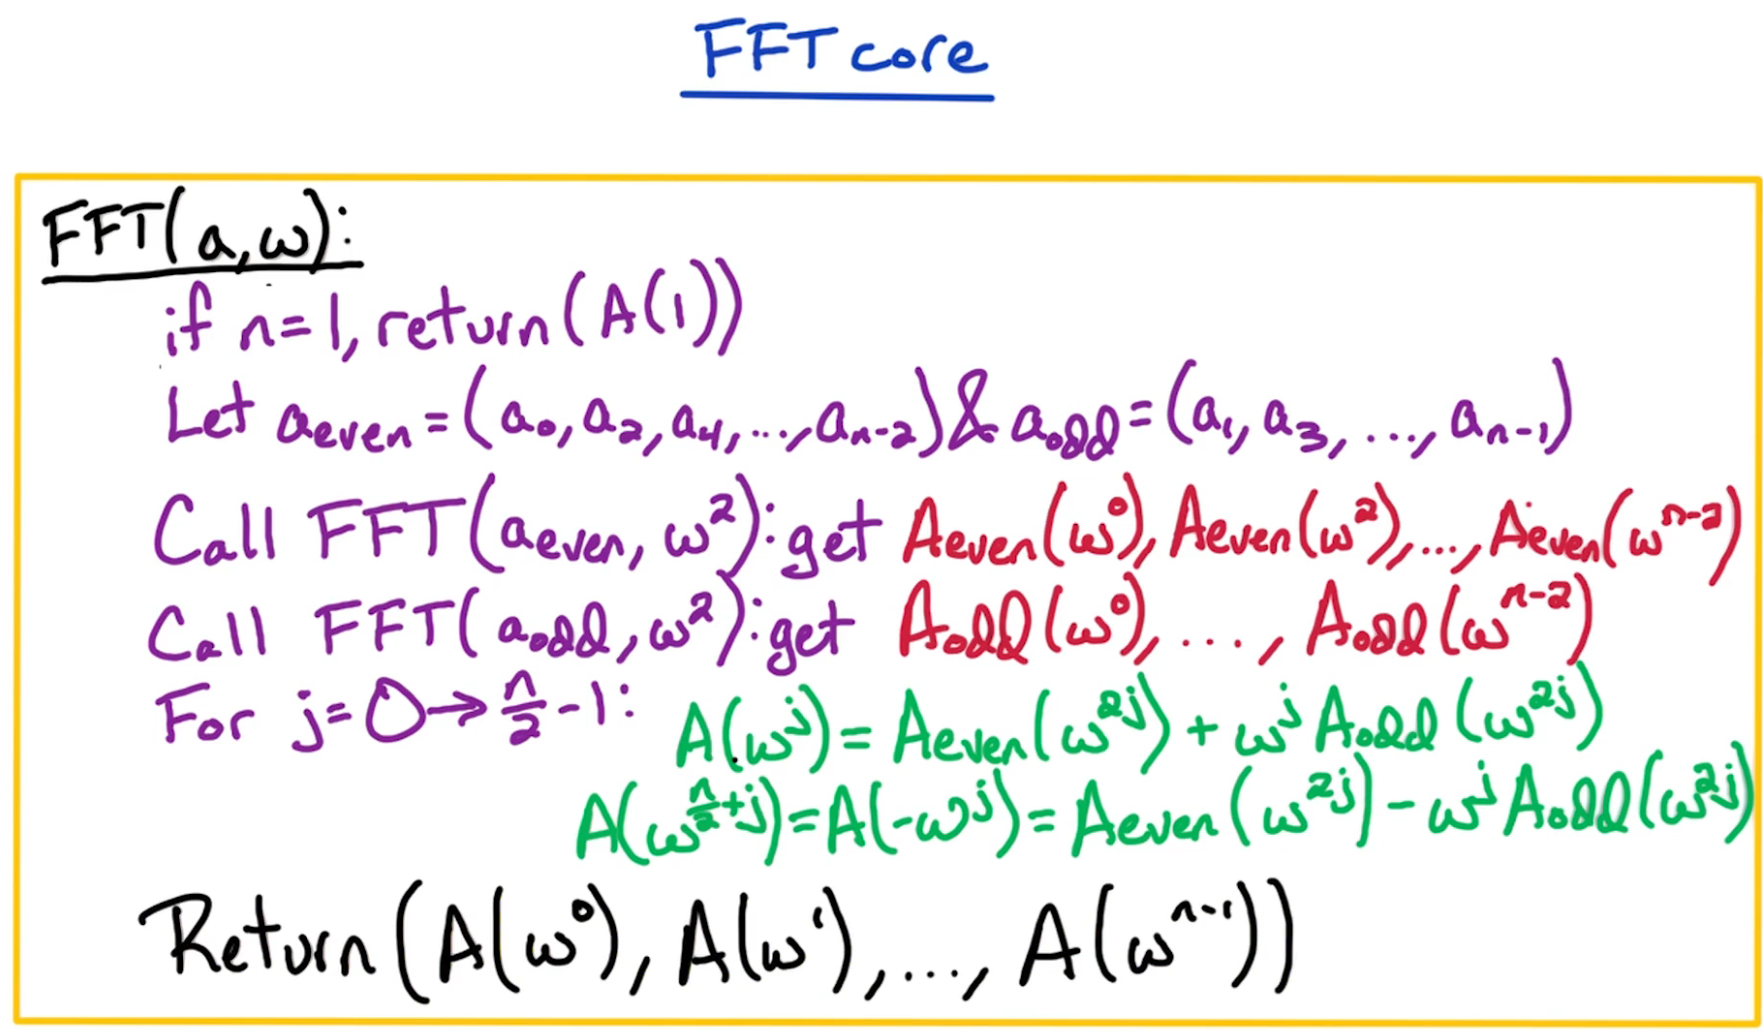 FFT core
FFT(a, ω):
if n=1, return (A(1))
Let a_even = (a₀, a₂, a₄, ..., a_{n-2}) & a_odd = (a₁, a₃, ..., a_{n-1})
Call FFT(a_even, ω²): get A_even(ω⁰), A_even(ω²), ..., A_even(ω^{n-2})
Call FFT(a_odd, ω²): get A_odd(ω⁰), ..., A_odd(ω^{n-2})
For j=0→n/2-1: A(ω^j) = A_even(ω^{2j}) + ω^j A_odd(ω^{2j})
A(ω^{n/2+j}) = A(-ω^j) = A_even(ω^{2j}) - ω^j A_odd(ω^{2j})
Return (A(ω⁰), A(ω¹), ..., A(ω^{n-1}))